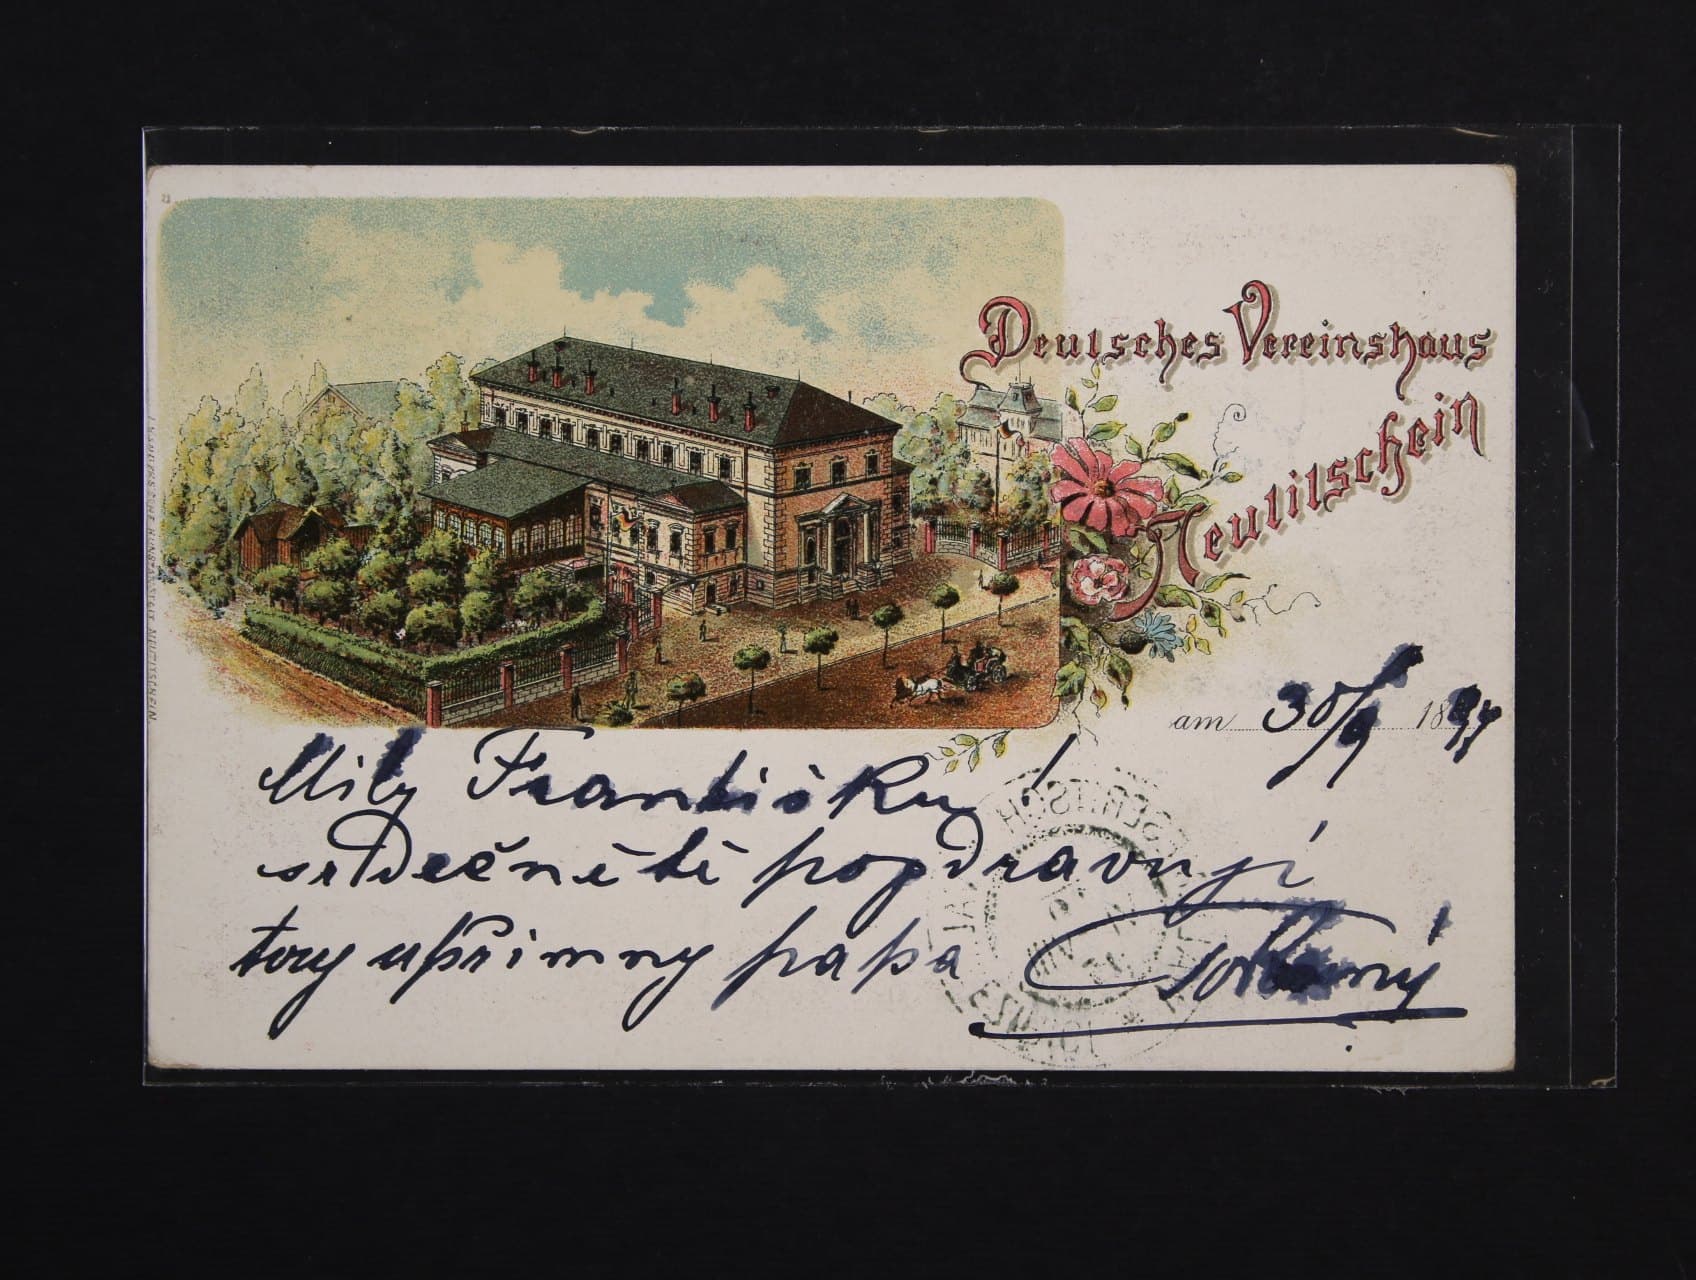 Deutsches Vereinshaus
Neutitschein
am 30/9 1897
Milý Františku!
srdečně tě pozdravují
tvůj upřimný papa